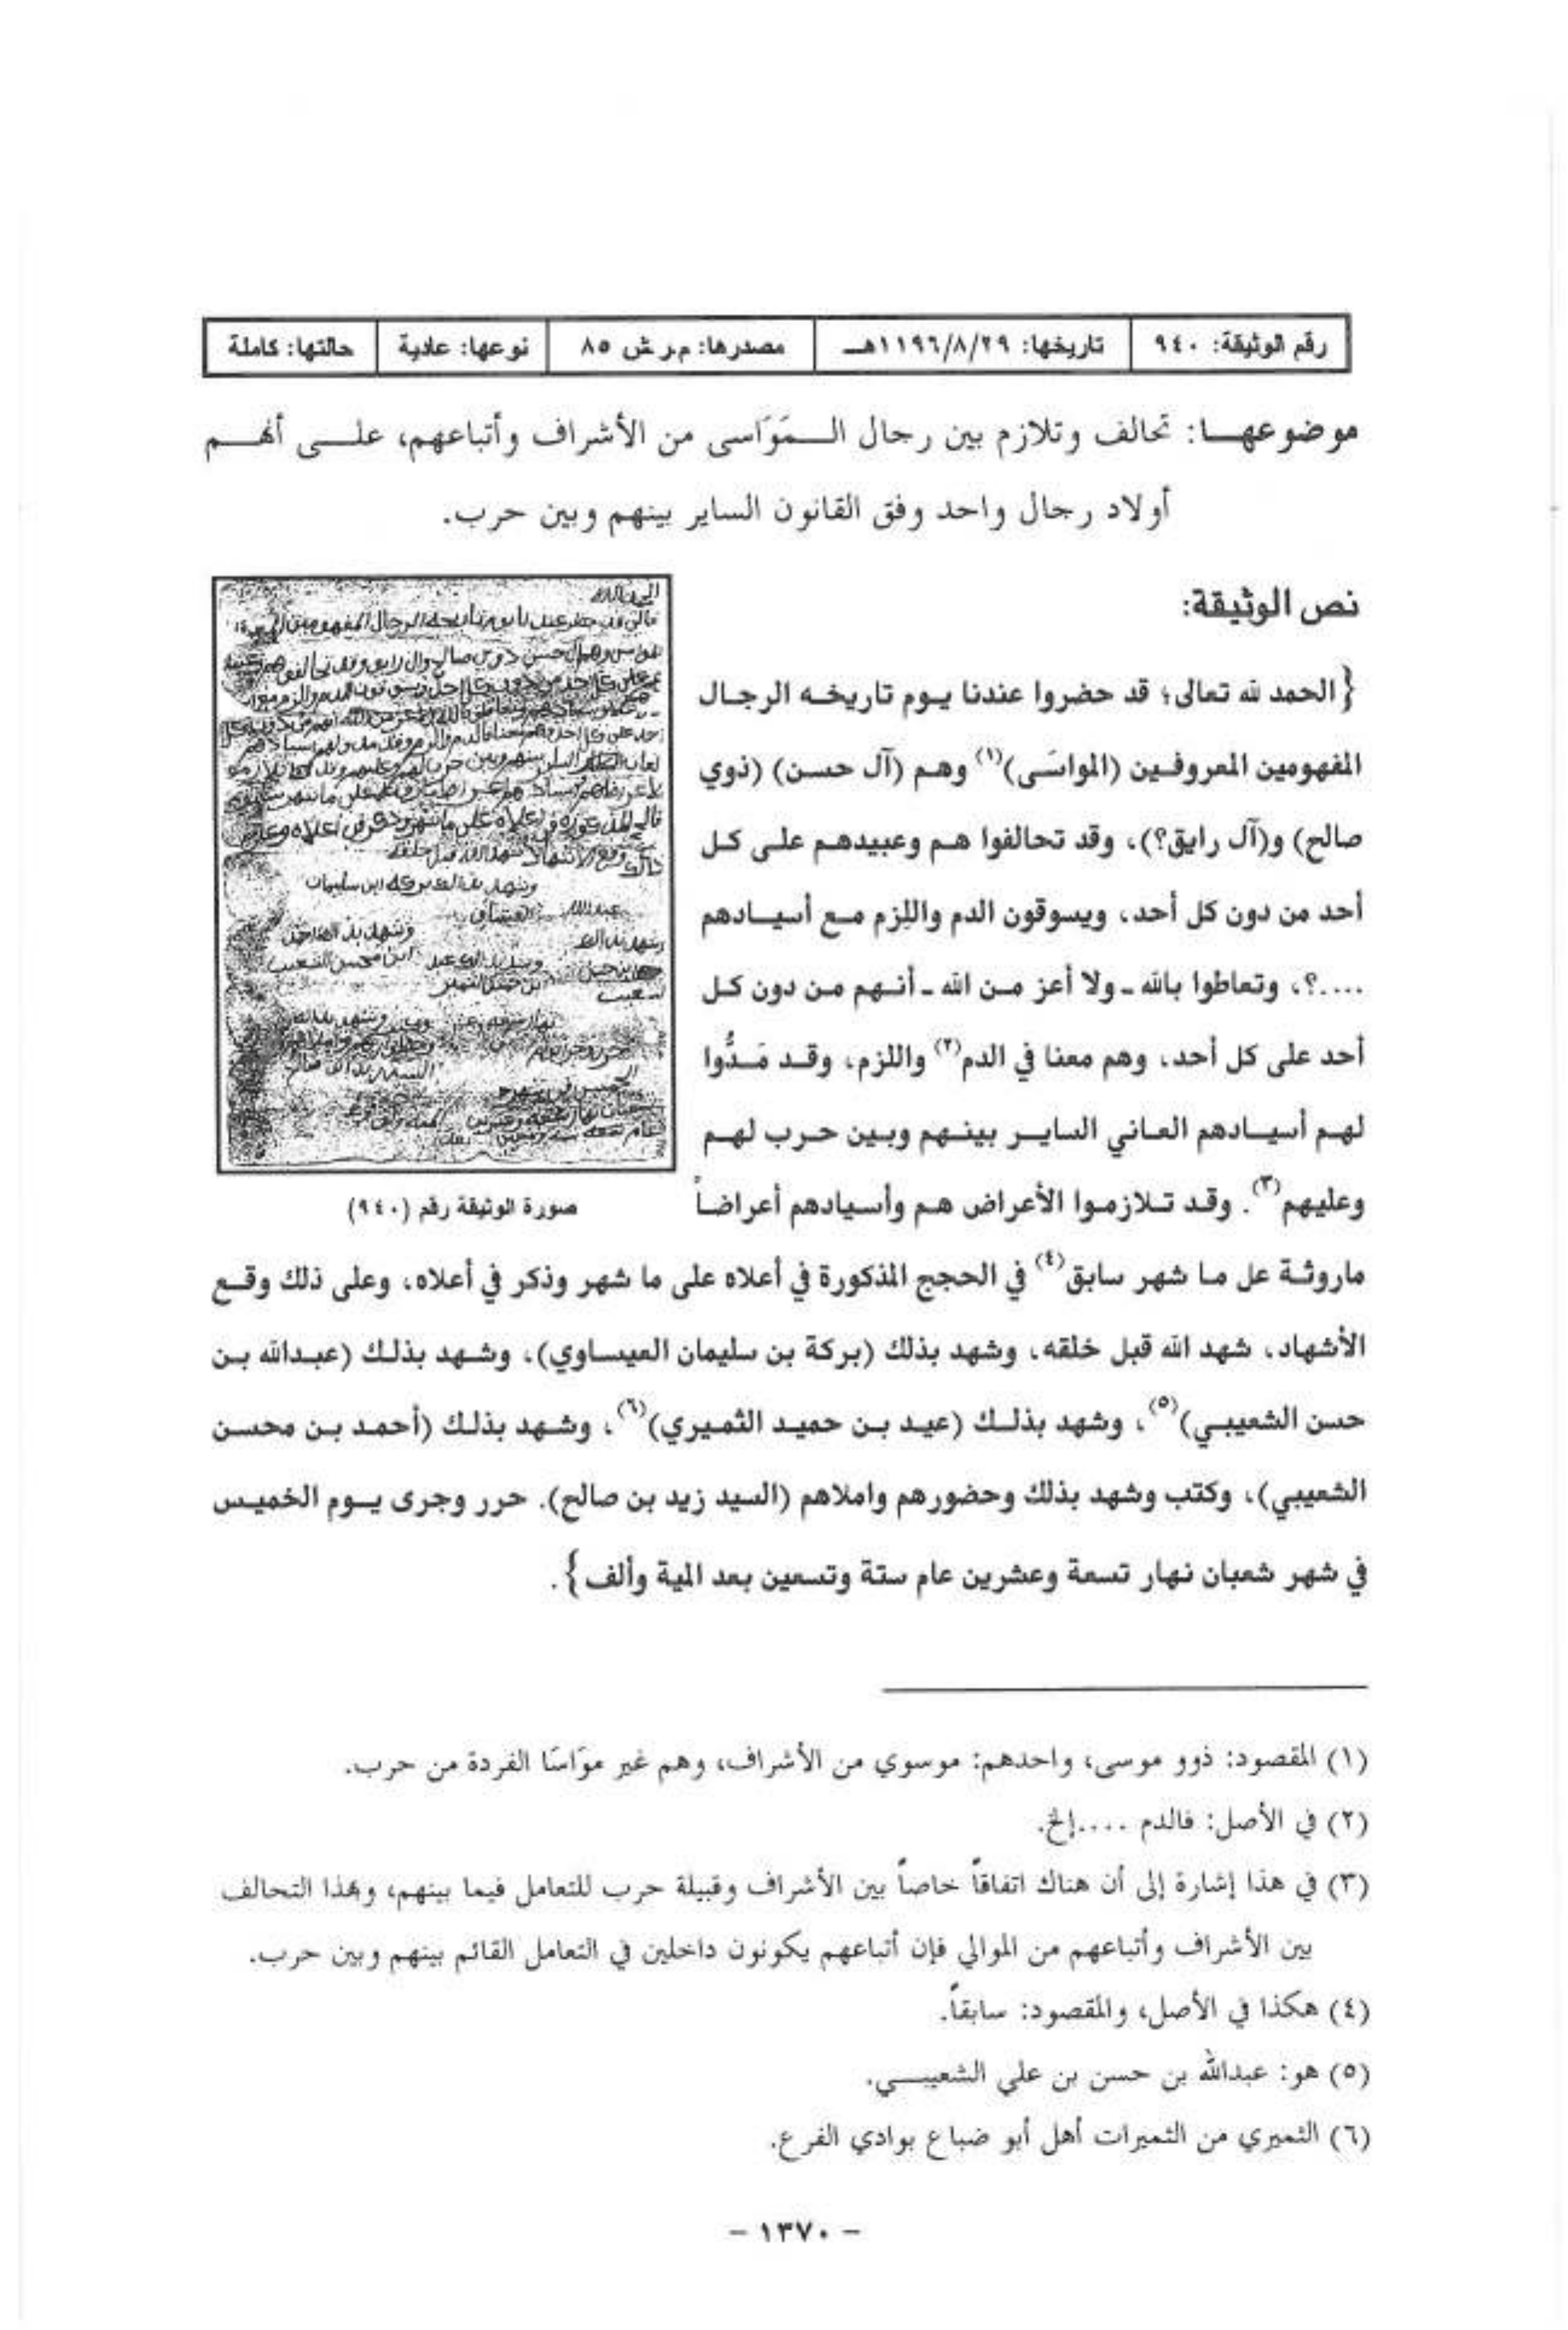 رقم الوثيقة: ٩٤٠ تاريخها: ١١٩٦/٨/٢٩هـ مصدرها: م.ر ش ٨٥ نوعها: عادية حالتها: كاملة
موضوعها: تحالف وتلازم بين رجال المَوَاسى من الأشراف وأتباعهم، على أنهم
أولاد رجال واحد وفق القانون الساير بينهم وبين حرب.
نص الوثيقة:
{الحمد لله تعالى؛ قد حضروا عندنا يوم تاريخه الرجال
المفهومين المعروفين (المواسَى)(١) وهم (آل حسن) (ذوي
صالح) و(آل رايق؟)، وقد تحالفوا هم وعبيدهم على كل
أحد من دون كل أحد، ويسوقون الدم واللزم مع أسيادهم
....؟، وتعاطوا بالله ـ ولا أعز من الله ـ أنهم من دون كل
أحد على كل أحد، وهم معنا في الدم(٢) واللزم، وقد مَدُّوا
لهم أسيادهم العاني الساير بينهم وبين حرب لهم
وعليهم(٣). وقد تلازموا الأعراض هم وأسيادهم أعراضاً
صورة الوثيقة رقم (٩٤٠)
ماروثة عل ما شهر سابق(٤) في الحجج المذكورة في أعلاه على ما شهر وذكر في أعلاه، وعلى ذلك وقع
الأشهاد، شهد الله قبل خلقه، وشهد بذلك (بركة بن سليمان العيساوي)، وشهد بذلك (عبدالله بن
حسن الشعيبي)(٥)، وشهد بذلك (عيد بن حميد الثميري)(٦)، وشهد بذلك (أحمد بن محسن
الشعيبي)، وكتب وشهد بذلك وحضورهم واملاهم (السيد زيد بن صالح). حرر وجرى يوم الخميس
في شهر شعبان نهار تسعة وعشرين عام ستة وتسعين بعد المية وألف}.
(١) المقصود: ذوو موسى، واحدهم: موسوي من الأشراف، وهم غير موَاسَا الفردة من حرب.
(٢) في الأصل: فالدم ....إلخ.
(٣) في هذا إشارة إلى أن هناك اتفاقاً خاصاً بين الأشراف وقبيلة حرب للتعامل فيما بينهم، وبهذا التحالف
بين الأشراف وأتباعهم من الموالي فإن أتباعهم يكونون داخلين في التعامل القائم بينهم وبين حرب.
(٤) هكذا في الأصل، والمقصود: سابقاً.
(٥) هو: عبدالله بن حسن بن علي الشعيبي.
(٦) الثميري من الثميرات أهل أبو ضباع بوادي الفرع.
- ١٣٧٠ -